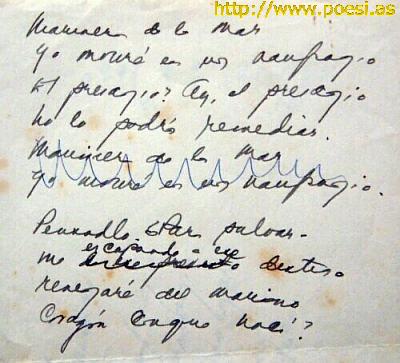 http://www.poesi.as
Marinero de la mar
Yo moriré en un naufragio
El presagio? Ay, el presagio
no lo podrá remediar.
Marinero de la mar
Yo moriré en un naufragio.
Pensadlo. ¿Para salvar-
escapando a ese
me destino
renegaré del marino
corazón conque nací?